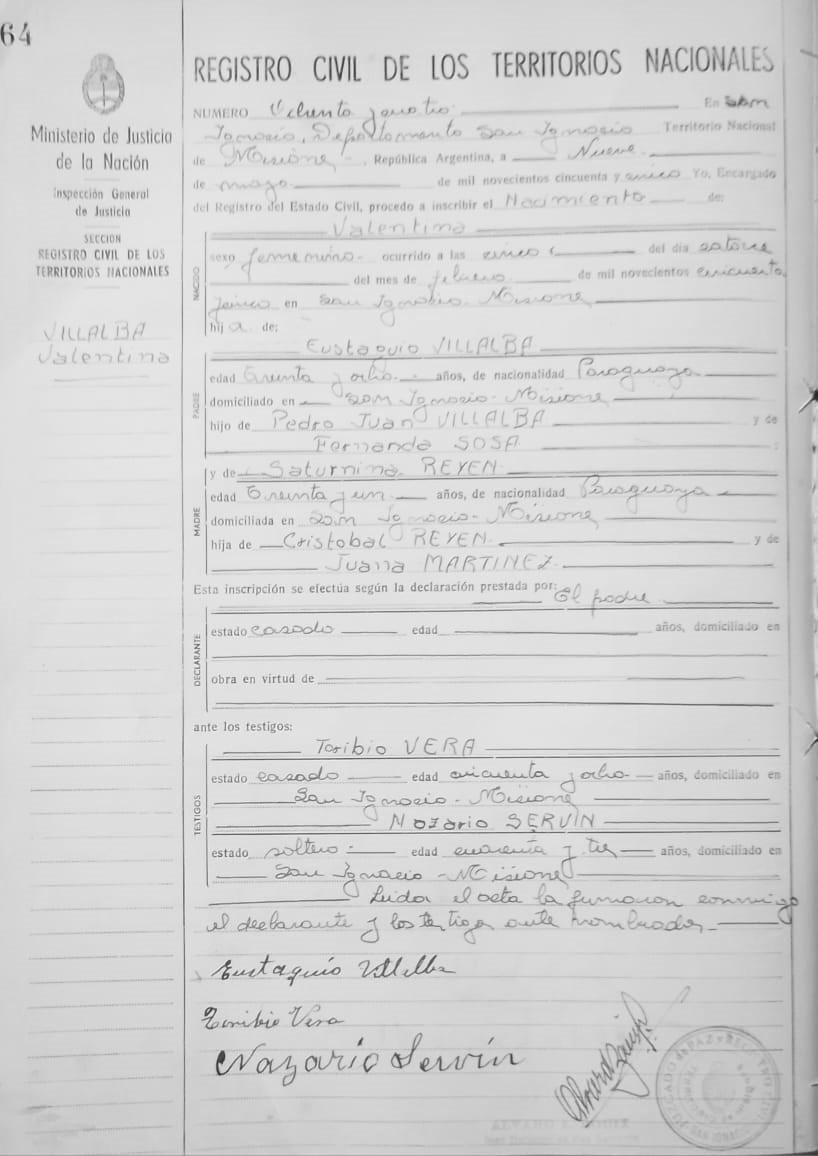 64
Ministerio de Justicia
de la Nación
Inspección General
de Justicia
SECCION
REGISTRO CIVIL DE LOS
TERRITORIOS NACIONALES
VILLALBA
Valentina
REGISTRO CIVIL DE LOS TERRITORIOS NACIONALES
NUMERO En San
Ignacio, Departamento San Ignacio Territorio Nacional
de Misiones, República Argentina, a Nueve
de mayo de mil novecientos cincuenta y cinco Yo, Encargado
del Registro del Estado Civil, procedo a inscribir el Nacimiento de:
NACIDO
Valentina
sexo femenino ocurrido a las cinco del día catorce
del mes de febrero de mil novecientos cincuenta
y cinco en San Ignacio. Misiones
hija de:
PADRE
Eustaquio VILLALBA
edad treinta y ocho años, de nacionalidad Paraguaya
domiciliado en San Ignacio - Misiones
hijo de Pedro Juan VILLALBA y de
Fernanda SOSA
MADRE
y de Saturnina REYEN
edad treinta y un años, de nacionalidad Paraguaya
domiciliada en San Ignacio - Misiones
hija de Cristobal REYEN y de
Juana MARTINEZ
Esta inscripción se efectúa según la declaración prestada por: El padre
DECLARANTE
estado casado edad años, domiciliado en
obra en virtud de
ante los testigos:
TESTIGOS
Toribio VERA
estado casado edad cincuenta y ocho años, domiciliado en
San Ignacio - Misiones
Nazario SERVIN
estado soltero edad cuarenta y tres años, domiciliado en
San Ignacio - Misiones
Leida el acta la firmaron conmigo
el declarante y los testigos ante nombrados
Eustaquio Villalba
Toribio Vera
Nazario Servín
JUZGADO de PAZ y REGISTRO CIVIL
SAN IGNACIO